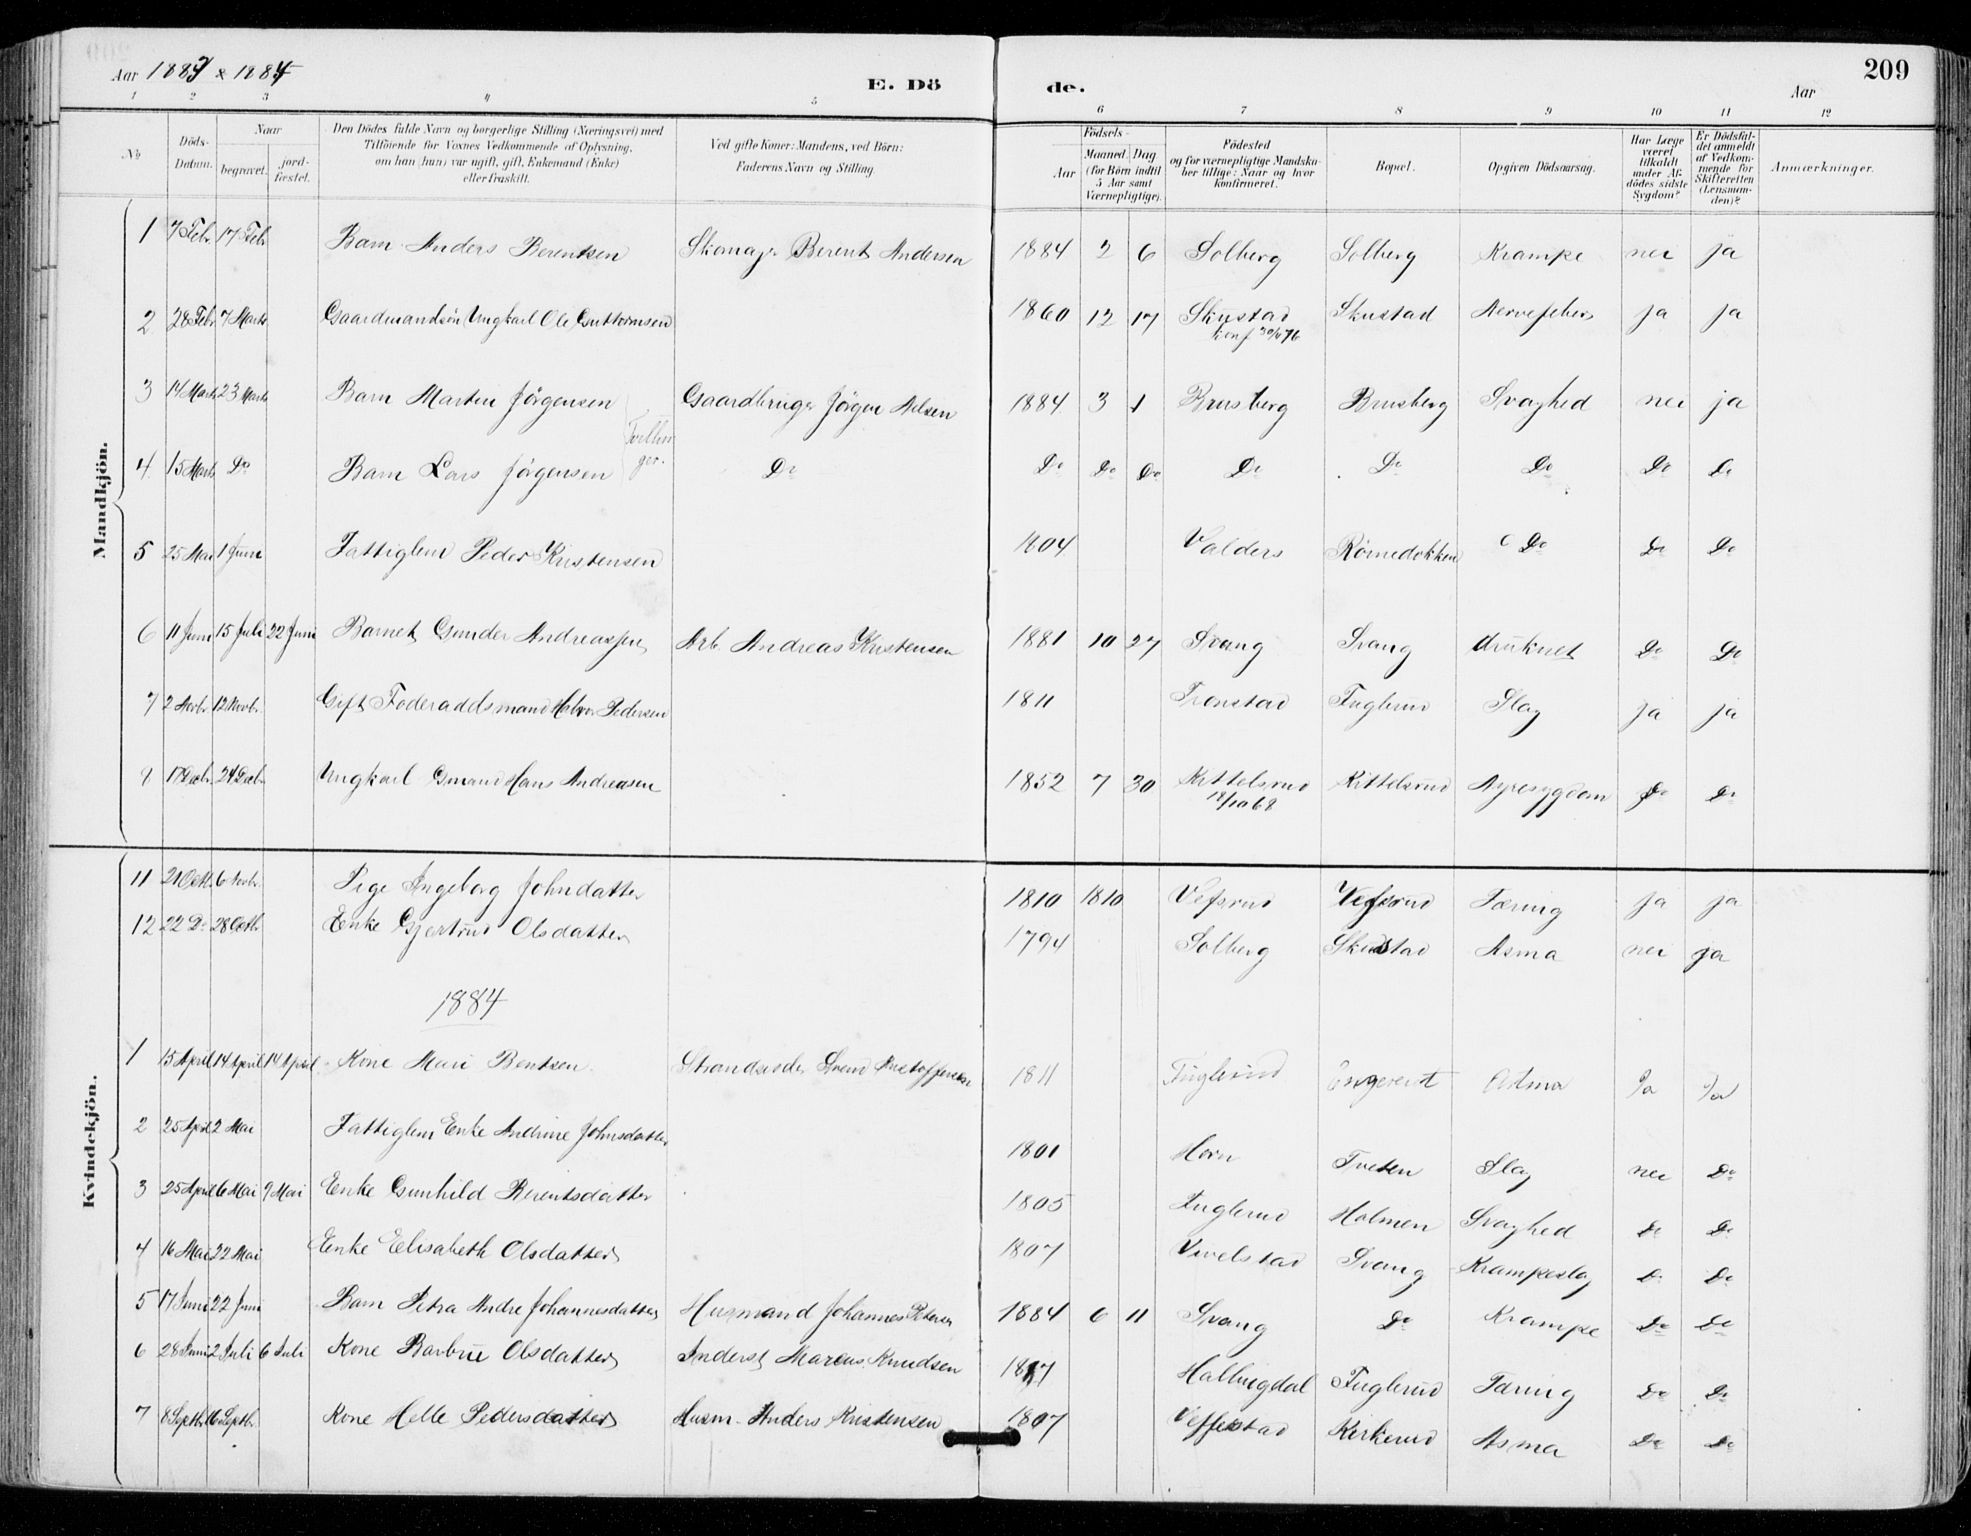 Aar 1883 & 1884 E. Dö de. Aar 209
1 2 3 4 5 6 7 8 9 10 11 12
No
Döds-
Datum.
Naar
begravet.
jord-
fæstet.
Den Dödes fulde Navn og borgerlige Stilling (Næringsvei) med
Tilföiende for Voxnes Vedkommende af Oplysning,
om han (hun) var ugift, gift, Enkemand (Enke)
eller fraskilt.
Ved gifte Koner: Mandens, ved Börn:
Faderens Navn og Stilling.
Födsels-
Aar
Maaned. Dag
(for Börn indtil
5 Aar samt
Værnepligtige).
Födested
og for værnepligtige Mandska-
ber tillige: Naar og hvor
konfirmeret.
Bopæl.
Opgiven Dödsaarsag.
Har Læge
været
tilkaldt
under Af-
dödes sidste
Sygdom?
Er Dödsfal-
det anmeldt
af Vedkom-
mende for
Skifteretten
(Lensman-
den)?
Anmærkninger.
Mandkjön.
1 7 Febr 17 Febr Barn Anders Berentsen Skomagr Berent Andersen 1884 2 6 Solberg Solberg Krampe nei ja
2 28 Febr 7 Marts Gaardmandsön Ungkarl Ole Guttormsen 1860 12 17 Skustad Skustad Nervefeber ja ja
Konf 76
3 14 Marts 23 Marts Barn Martin Jörgensen Gaardbruger Jörgen Nelsen 1884 3 1 Brusberg Brusberg Svaghed nei ja
Tvillin
ger.
4 15 Marts Do Barn Lars Jörgensen Do Do Do Do Do Do Do Do Do
5 25 Mai 1 Juni Fattiglem Peder Kristensen 1804 Valders Römedokken Do Do Do
6 11 Juni 15 Juli 22 Juni Barnet Gunder Andreassen Arb. Andreas Kristensen 1881 10 27 Svang Svang druknet Do Do
7 2 Novbr. 12 Novbr. Gift Föderaadsmand Halvor Pedersen 1811 Tronstad Fuglerud Slag ja ja
17 Decbr. 24 Decbr Ungkarl Gmand Hans Andreasen 1852 7 30 Kittelsrud Kittelsrud Nyresygdom Do Do
18/10 68
Kvindekjön.
11 21 Octb. 6 Novbr. Pige Ingeborg Johndatter 1810 1810 Vefsrud Vefsrud Tæring ja ja
12 22 Do 28 Octb. Enke Gjertrud Olsdatter 1794 Solberg Skustad Asma nei ja
1884
1 15 April 14 April 14 April Kone Mari Bentsen. Strandsider Svend 1811 Fuglerud Asma Ja Ja
2 25 April 2 Mai Fattiglem Enke Andrine Johnsdatter 1801 Horn Tveten Slag nei Do
3 25 April 6 Mai 9 Mai Enke Gunhild Berentsdatter 1805 Fuglerud Holmen Svaghed Do Do
4 16 Mai 22 Mai Enke Elisabeth Olsdatter 1807 Vivelstad Svang Krampeslag Do Do
5 17 Juni 22 Juni Barn Petra Andre Johannesdatter Husmand Johannes Petersen 1884 6 11 Svang Do Krampe Do Do
6 28 Juni 2 Juli 6 Juli Kone Barbru Olsdatter Inderst Marcus Knudsen 1817 Hallingdal Fuglerud Tæring Do Do
7 8 Septb. 16 Septb. Kone Helle Pedersdatter Husm. Anders Kristensen 1807 Veffelstad Kirkerud Asma Do Do